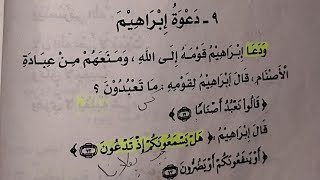 ٩ - دَعْوَةُ إِبْرَاهِيْمَ
وَدَعَا إِبْرَاهِيْمُ قَوْمَهُ إِلَى اللهِ ، وَمَنَعَهُمْ مِنْ عِبَادَةِ
الْأَصْنَامِ ، قَالَ إِبْرَاهِيْمُ لِقَوْمِهِ : مَا تَعْبُدُوْنَ ؟
﴿ قَالُوا نَعْبُدُ أَصْنَامًا ﴾
قَالَ إِبْرَاهِيْمُ : ﴿ هَلْ يَسْمَعُونَكُمْ إِذْ تَدْعُونَ ﴿٧٢﴾
أَوْ يَنْفَعُونَكُمْ أَوْ يَضُرُّونَ ﴿٧٣﴾ ﴾